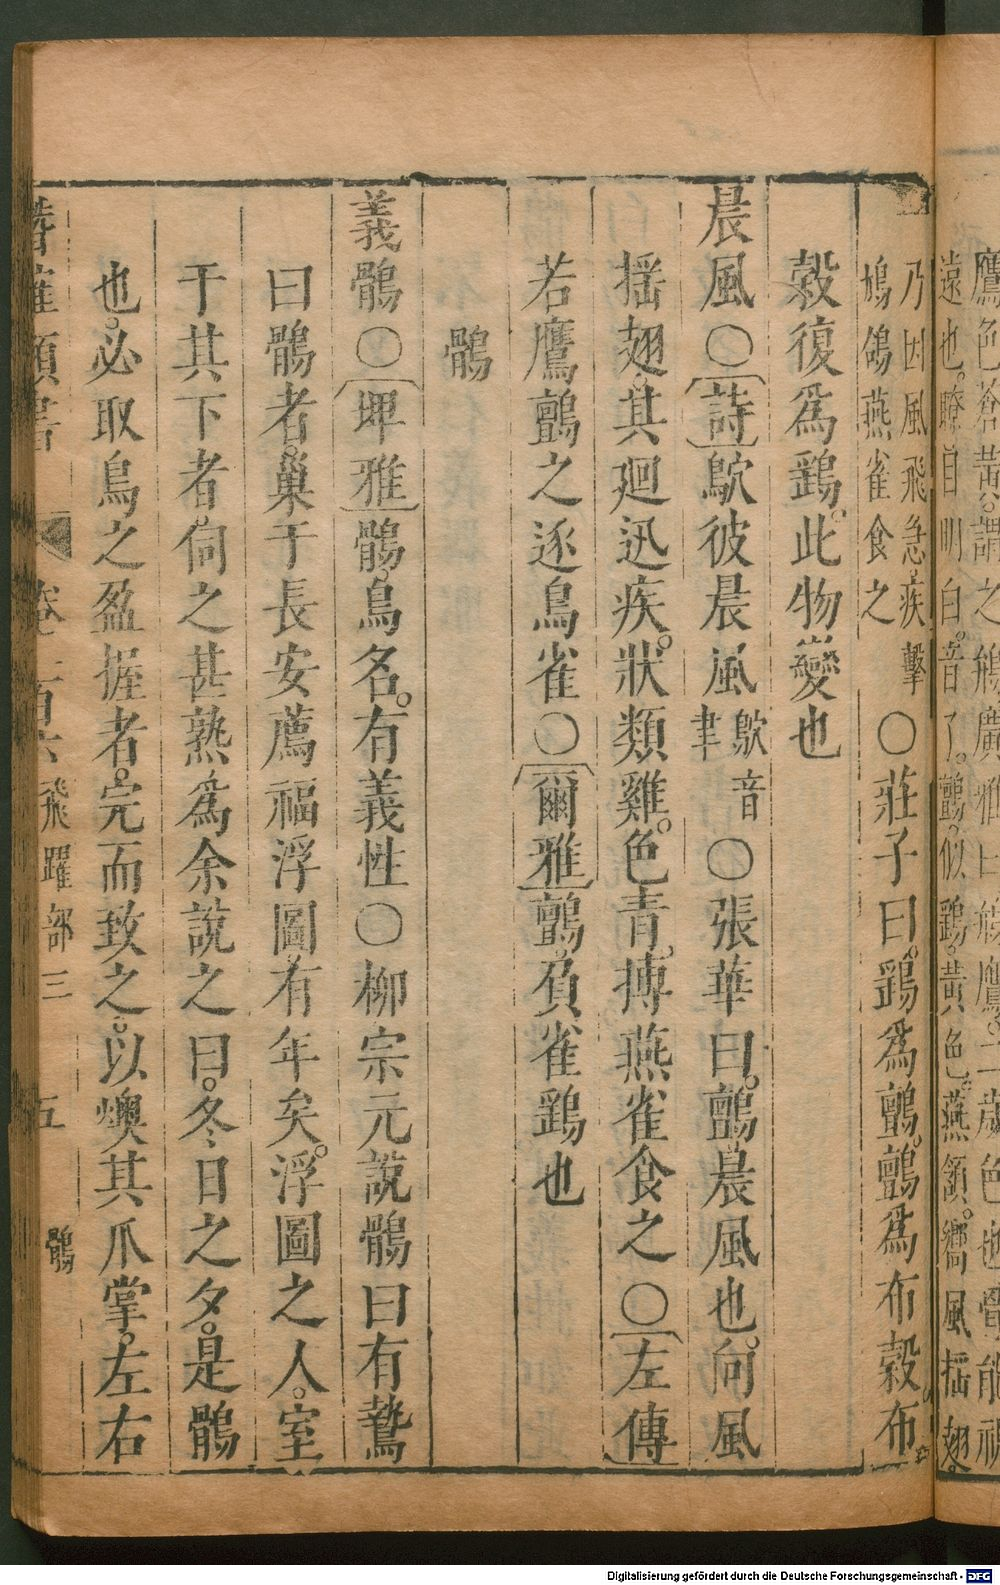 鷹色蒼黃謂之鵵廣雅曰鵵鷹二歲色也
遠也瞭目明白音了鸇似鷂黃色燕頷嚮風搖翅
乃因風飛急疾擊
鳩鴿燕雀食之
○莊子曰鷂爲鸇鸇爲布穀布
穀復爲鷂此物變也
晨風○詩鴥彼晨風
鴥音聿
○張華曰鸇晨風也向風
搖翅其廻迅疾狀類雞色青搏燕雀食之○左傳
若鷹鸇之逐鳥雀○爾雅鸇負雀鷂也
鶻
義鶻○埤雅鶻鳥名有義性○柳宗元說鶻曰有鷙
曰鶻者巢于長安薦福浮圖有年矣浮圖之人室
于其下者伺之甚熟爲余說之曰冬日之夕是鶻
也必取鳥之盈握者完而致之以燠其爪掌左右
潛確類書 卷一百六飛躍部三 五 鶻
Digitalisierung gefördert durch die Deutsche Forschungsgemeinschaft - DFG